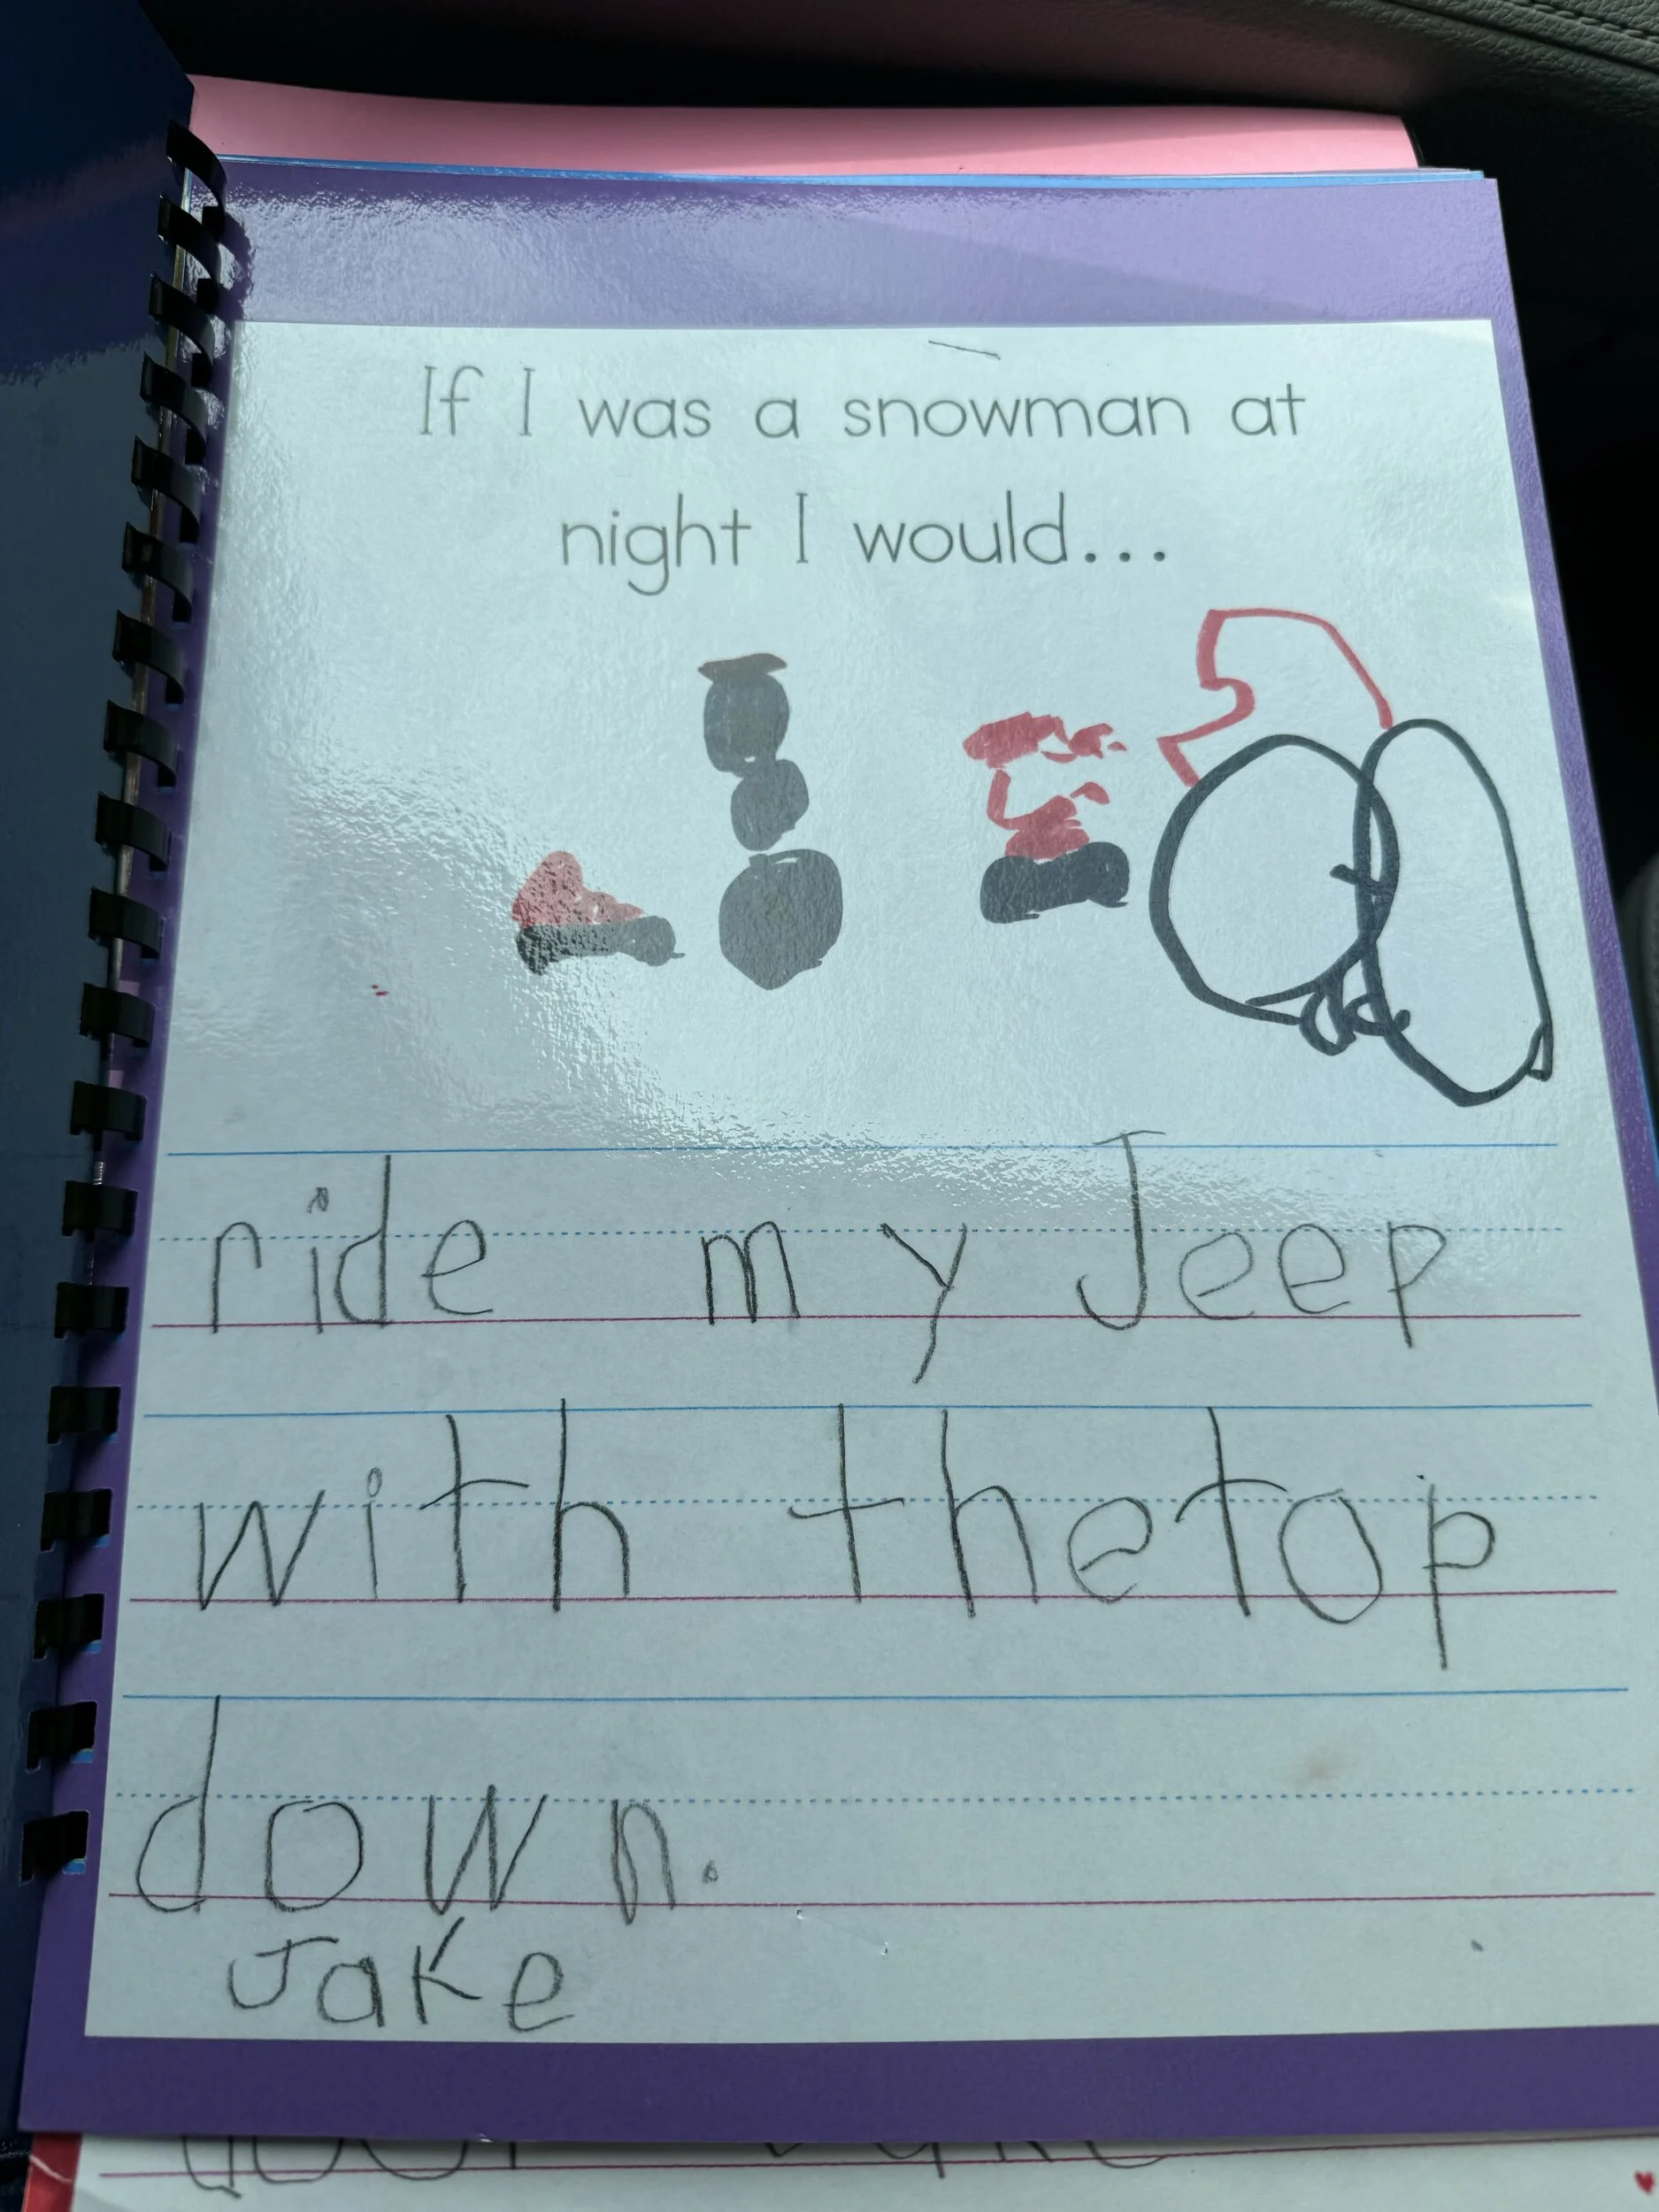 If I was a snowman at
night I would...
ride my Jeep
with thetop
down.
Jake